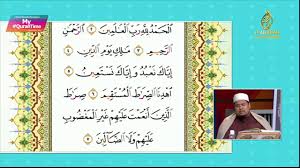 My
#QuranTime
ٱلْحَمْدُ لِلَّهِ رَبِّ ٱلْعَـٰلَمِينَ ٢ ٱلرَّحْمَـٰنِ
ٱلرَّحِيمِ ٣ مَـٰلِكِ يَوْمِ ٱلدِّينِ ٤
إِيَّاكَ نَعْبُدُ وَإِيَّاكَ نَسْتَعِينُ ٥
ٱهْدِنَا ٱلصِّرَٰطَ ٱلْمُسْتَقِيمَ ٦ صِرَٰطَ
ٱلَّذِينَ أَنْعَمْتَ عَلَيْهِمْ غَيْرِ ٱلْمَغْضُوبِ
عَلَيْهِمْ وَلَا ٱلضَّآلِّينَ ٧